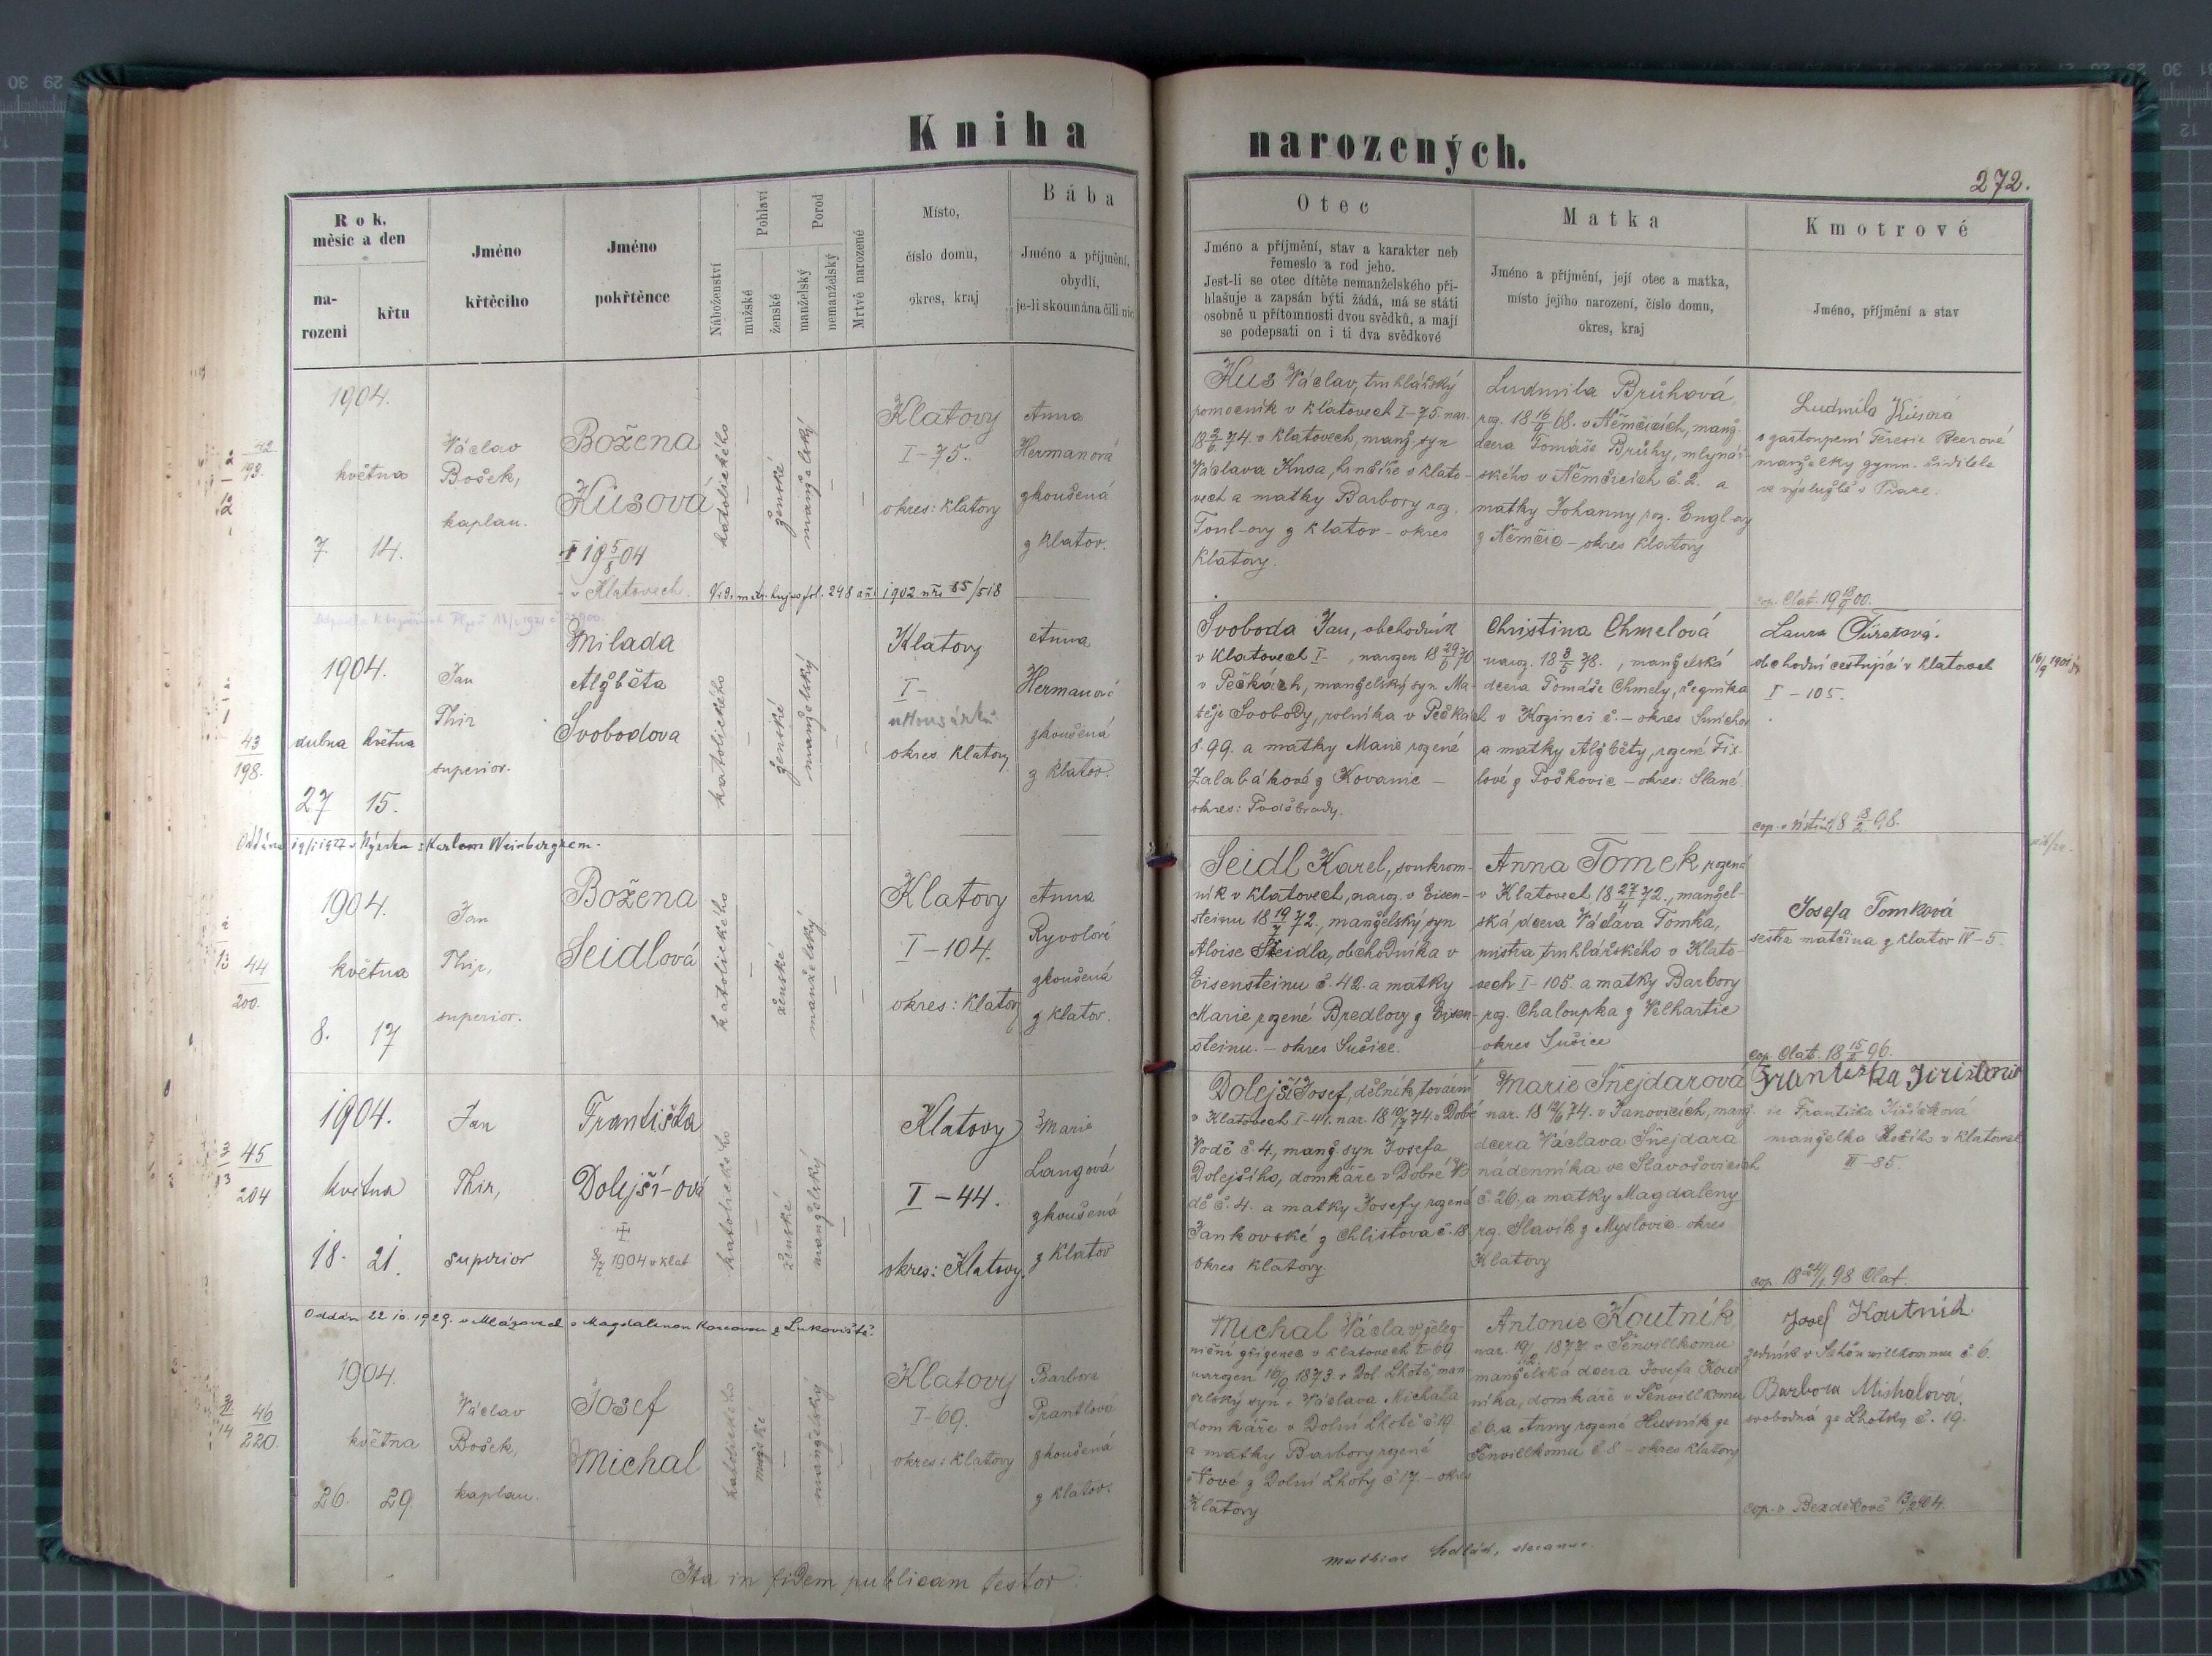 Kniha
narozených.
272.
Rok.
měsíc a den
na-
rozeni
křtu
Jméno
křtěcího
Jméno
pokřtěnce
Náboženství
Pohlaví
mužské
ženské
Porod
manželský
nemanželský
Mrtvě narozené
Místo,
číslo domu,
okres, kraj
Bába
Jméno a příjmění,
obydlí,
je-li skoumána čili nic
Otec
Jméno a příjmění, stav a karakter neb
řemeslo a rod jeho.
Jest-li se otec dítěte nemanželského při-
hlašuje a zapsán býti žádá, má se státi
osobně u přítomnosti dvou svědků, a mají
se podepsati on i ti dva svědkové
Matka
Jméno a příjmění, její otec a matka,
místo jejího narození, číslo domu,
okres, kraj
Kmotrové
Jméno, příjmění a stav
42
198.
1904.
května
7. 14.
Václav
Bošek,
kaplan.
Božena
Kusová
19 5/8 04
v Klatovech.
katolického
ženské
manželský
Klatovy
I-75.
okres: Klatovy
Anna
Hermanová
zkoušená
z Klatov.
Hus Václav, truhlářský
pomocník v Klatovech I-75. nar.
74. v Klatovech, manž. syn
Václava Kusa, hrnčíře v Klato-
vech a matky Barbory roz.
Toul-ovy z Klatov - okres
Klatovy.
Ludmila Brůhová,
roz. 18 68. v Němčicích, manž.
dcera Tomáše Brůhy, mlynář-
ského v Němčicích č. 2. a
matky Johanny roz. Engl-ovy
z Němčic - okres Klatovy
Ludmila Kusová
v zastoupení Teresie Beerové
manželky gymn. ředitele
ve výslužbě v Praze.
fol. 248 1902 85/518
cop. Clat. 00.
43
198.
1904.
dubna května
27 15.
Jan
Thir
superior.
Milada
Alžběta
Svobodova
katolického
ženské
manželský
Klatovy
I-
okres Klatovy
Anna
Hermanová
zkoušená
z Klatov.
Svoboda Jan, obchodník
v Klatovech I- , narozen 18 70
v Pečkách, manželský syn Ma-
těje Svobody, rolníka v Pečkách
č. 99. a matky Marie rozené
Zalabákové z Kovanic -
okres: Poděbrady.
Christina Chmelová
naroz. 18 8/5 78. , manželská
dcera Tomáše Chmely, řezníka
v Kozinci č. - okres Smíchov
a matky Alžběty, rozené Fix-
lové z Poškovic - okres: Slané.
Laura
obchodní cestující v Klatovech
I-105.
98.
Oddána 19/ 1927 v s Karlem Weinbergrem.
44
200.
1904.
května
8. 17
Jan
Thir,
superior.
Božena
Seidlová
katolického
ženské
manželský
Klatovy
I-104.
okres: Klatovy
Anna
Ryvolová
zkoušená
z Klatov.
Seidl Karel, soukrom-
ník v Klatovech, naroz. v Eisen-
steinu 18 72., manželský syn
Aloise Seidla, obchodníka v
Eisensteinu č. 42. a matky
Marie rozené Bredlovy z Eisen-
steinu. - okres Sušice.
Anna Tomek, rozená
v Klatovech 18 27/4 72., manžel-
ská dcera Václava Tomka,
mistra truhlářského v Klato-
vech I-105. a matky Barbory
roz. Chaloupka z Velhartic
okres Sušice
Josefa Tomková
sestra matčina z Klatov IV-5.
cop. Clat. 96.
45
204
1904.
května
18. 21.
Jan
Thir,
superior
Františka
Dolejší-ová
1904 v Klat
katolického
ženské
manželský
Klatovy
I-44.
okres: Klatovy.
Marie
Langová
zkoušená
z Klatov
Dolejší Josef, dělník tovární
v Klatovech I-44. nar. 74. v Dobré
Vodě č. 4., manž. syn Josefa
Dolejšího, domkáře v Dobré Vo-
dě č. 4. a matky Josefy rozené
Jankovské z Chlistova č. 18
okres Klatovy.
Marie Šnejdarová
nar. 18 74. v Janovicích, manž.
dcera Václava Šnejdara
nádenníka ve Slavošovicích
č. 26. a matky Magdaleny
roz. Slavík z Myslovic - okres
Klatovy
Františka
manželka v Klatovech
III-85.
cop. 18 98 Clat.
Oddán 22. 10. 1929. v Mlázovech s Magdalenou
46
220.
1904.
května
26. 29.
Václav
Bošek,
kaplan.
Josef
Michal
katolického
mužské
manželský
Klatovy
I-69.
okres: Klatovy
Barbora
Prantlová
zkoušená
z Klatov.
Michal Václav, želez-
niční zřízenec v Klatovech I-69
narozen 16/9 1873. v Dol. Lhotě, man-
želský syn Václava Michala
domkáře v Dolní Lhotě č. 19
a matky Barbory rozené
z Dolní Lhoty č. 17. - okres
Klatovy
Antonie Koutník
nar. 1877. v Šenvillkomu
manželská dcera Josefa Kout-
níka, domkáře v Šenvillkomu
č. 6. a Anny rozené Husník ze
Šenvillkomu č. 8. - okres Klatovy
Josef Koutník
zedník v Schönwillkommu č. 6.
Barbora Michalová,
svobodná ze Lhotky č. 19.
cop. v Bezděkově
Ita in fidem publicam testor:
Mathias Sedlák, decanus.